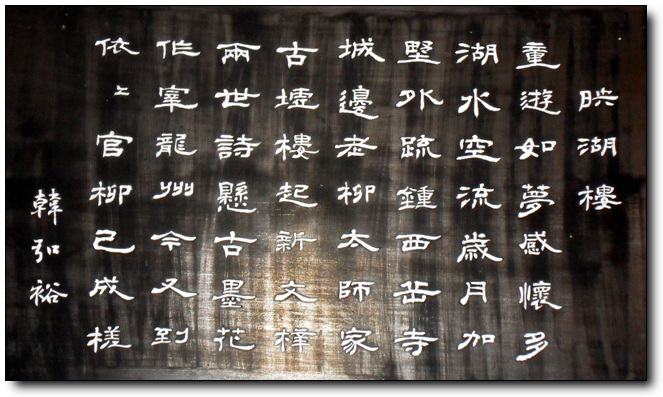 映湖樓
童遊如夢感懷多
湖水空流歲月加
墅外疏鍾西岳寺
城邊老柳太師家
古墟樓起新文梓
兩世詩懸古墨花
作宰龍州今又到
依〻官柳已成槎
韓弘裕